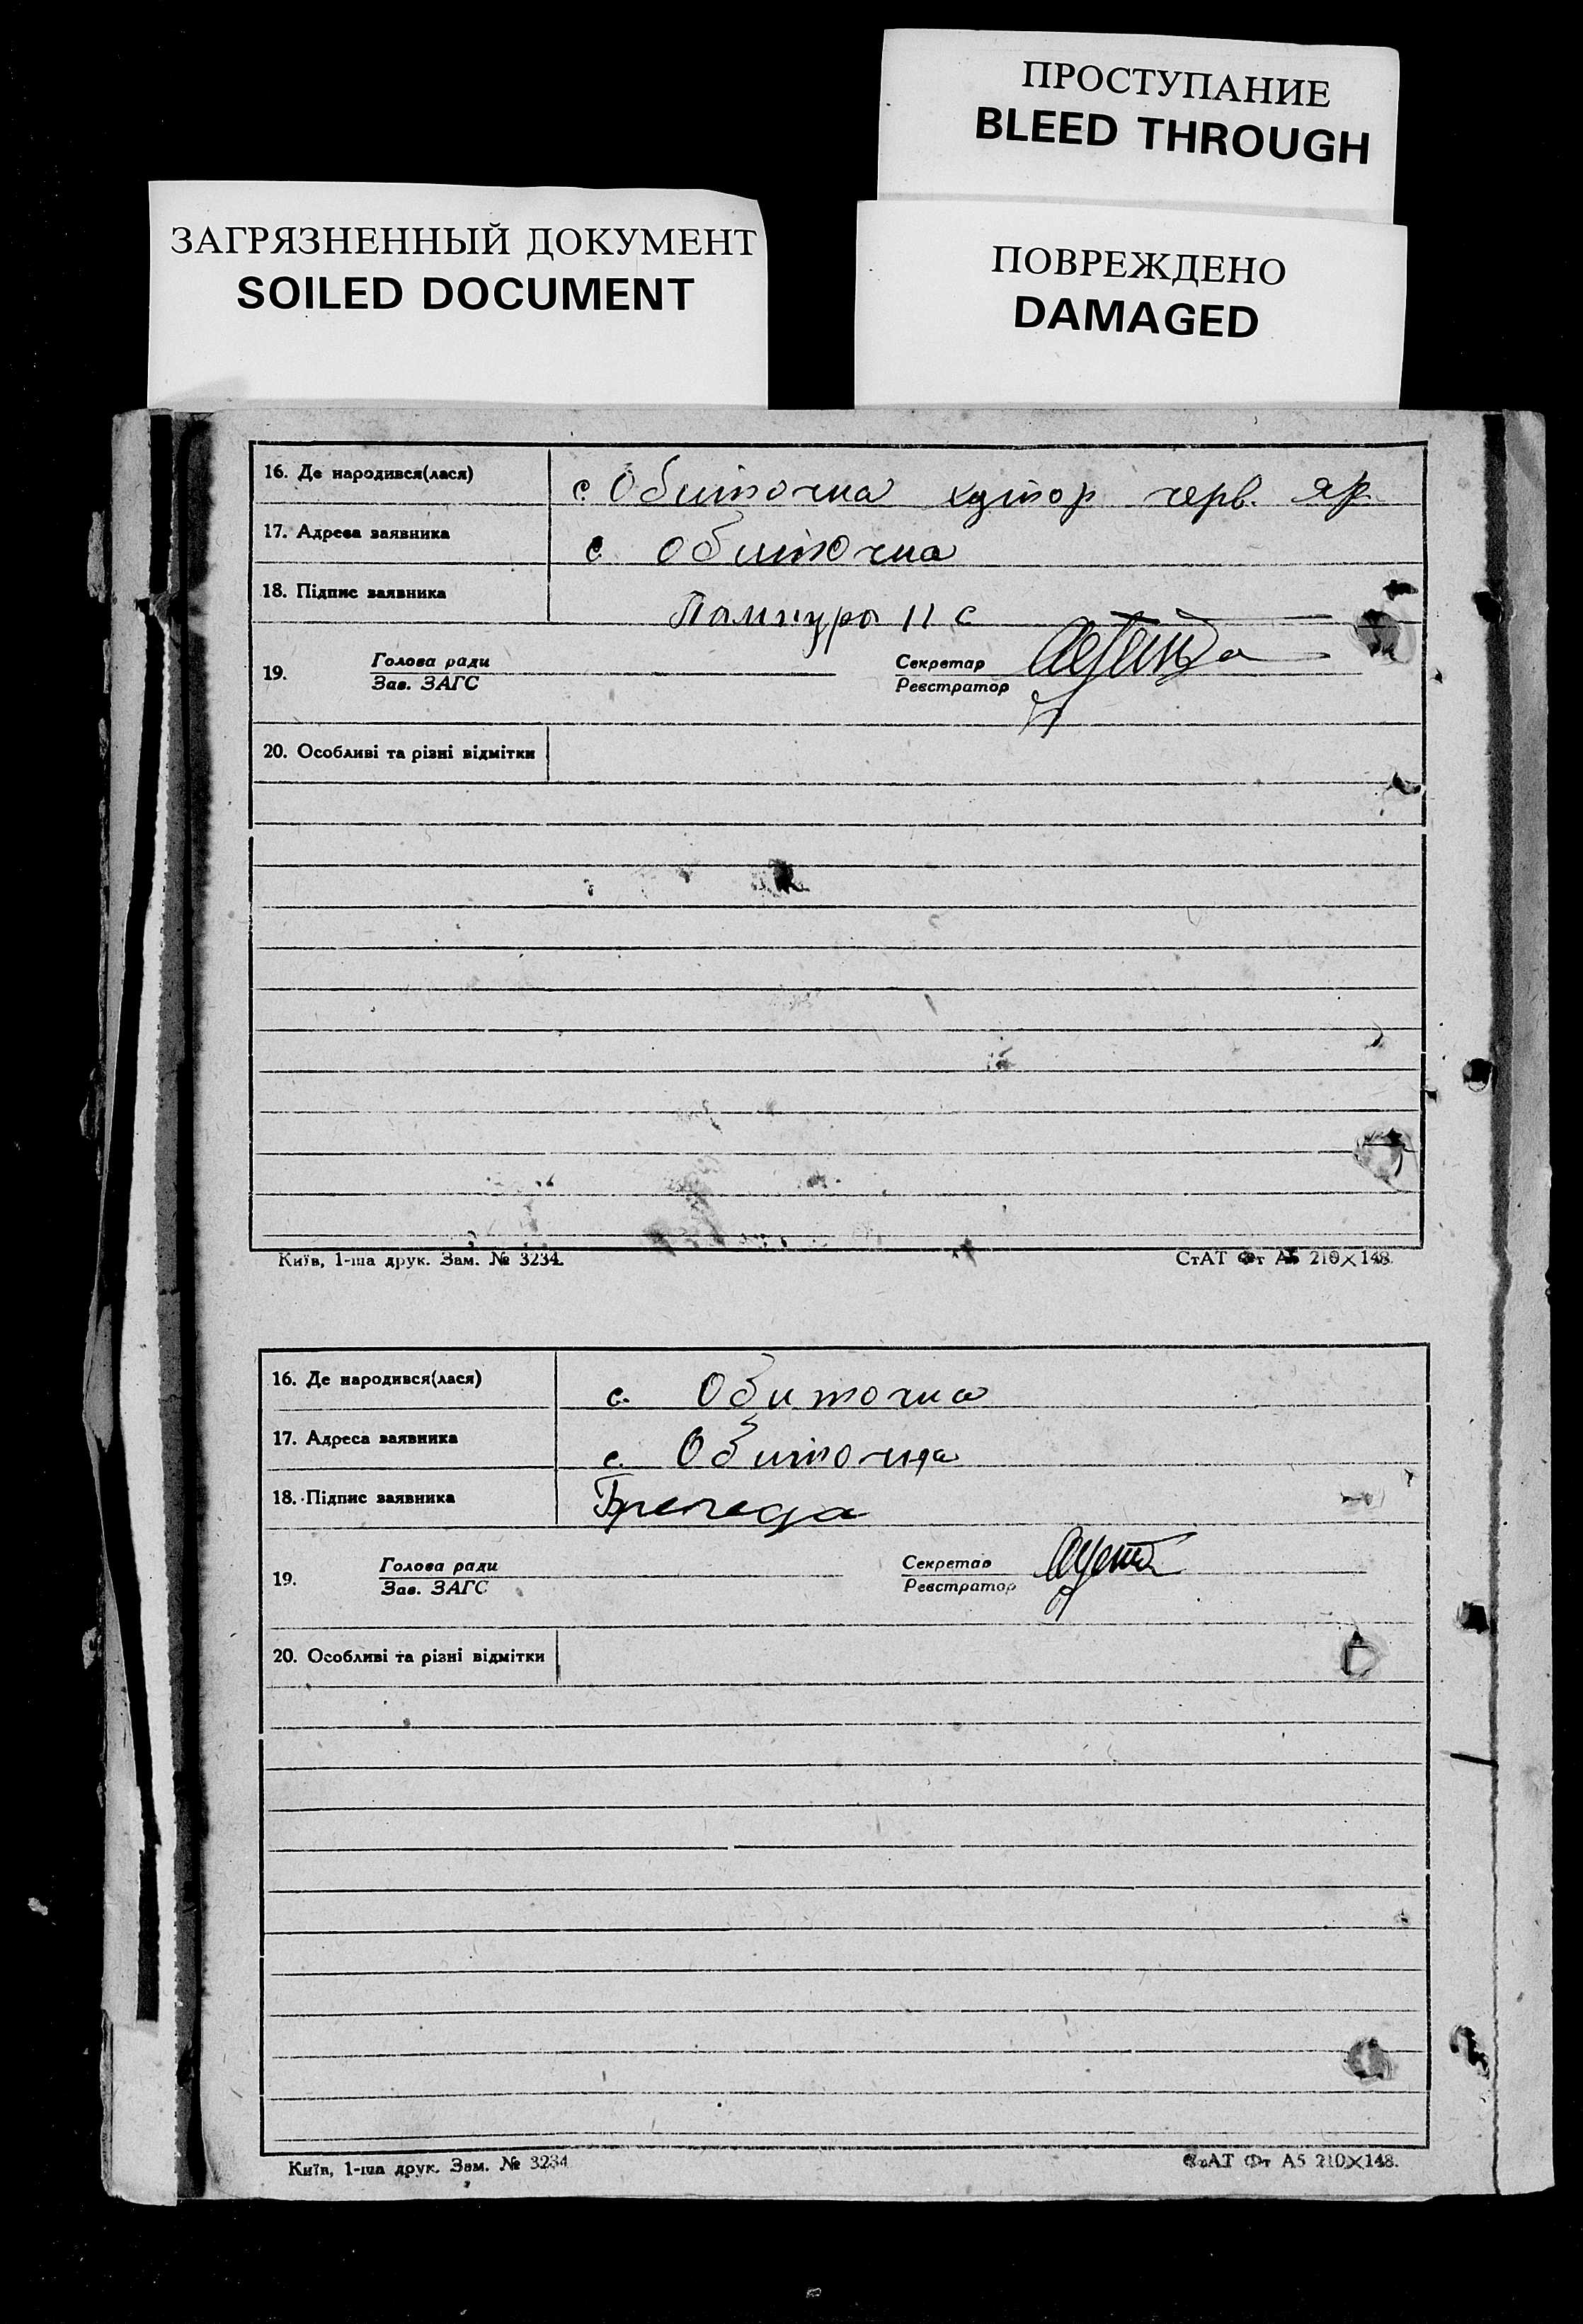 ПРОСТУПАНИЕ
BLEED THROUGH
ЗАГРЯЗНЕННЫЙ ДОКУМЕНТ
SOILED DOCUMENT
ПОВРЕЖДЕНО
DAMAGED
16. Де народився(лася) с. Обиточна хутор черв. яр.
17. Адреса заявника с. Обиточна
18. Підпис заявника
19. Голова ради Секретар
Зав. ЗАГС Реєстратор
20. Особливі та різні відмітки
Київ, 1-ша друк. Зам. № 3234. СтАТ Фт А5 210×148.
16. Де народився(лася) с. Обиточна
17. Адреса заявника с. Обиточна
18. Підпис заявника
19. Голова ради Секретар
Зав. ЗАГС Реєстратор
20. Особливі та різні відмітки
Київ, 1-ша друк. Зам. № 3234 СтАТ Фт А5 210×148.